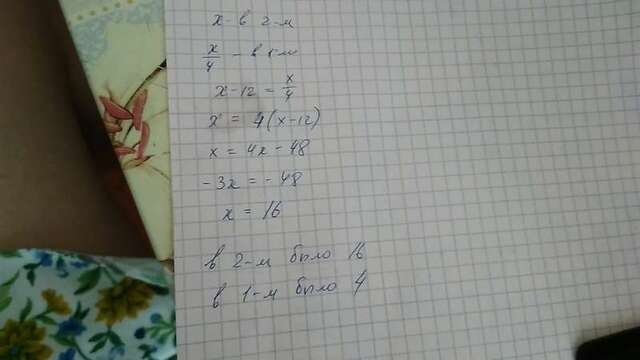 x - в 2-м
x/4 - в 1-м
x - 12 = x/4
x = 4(x-12)
x = 4x - 48
-3x = -48
x = 16
в 2-м было 16
в 1-м было 4